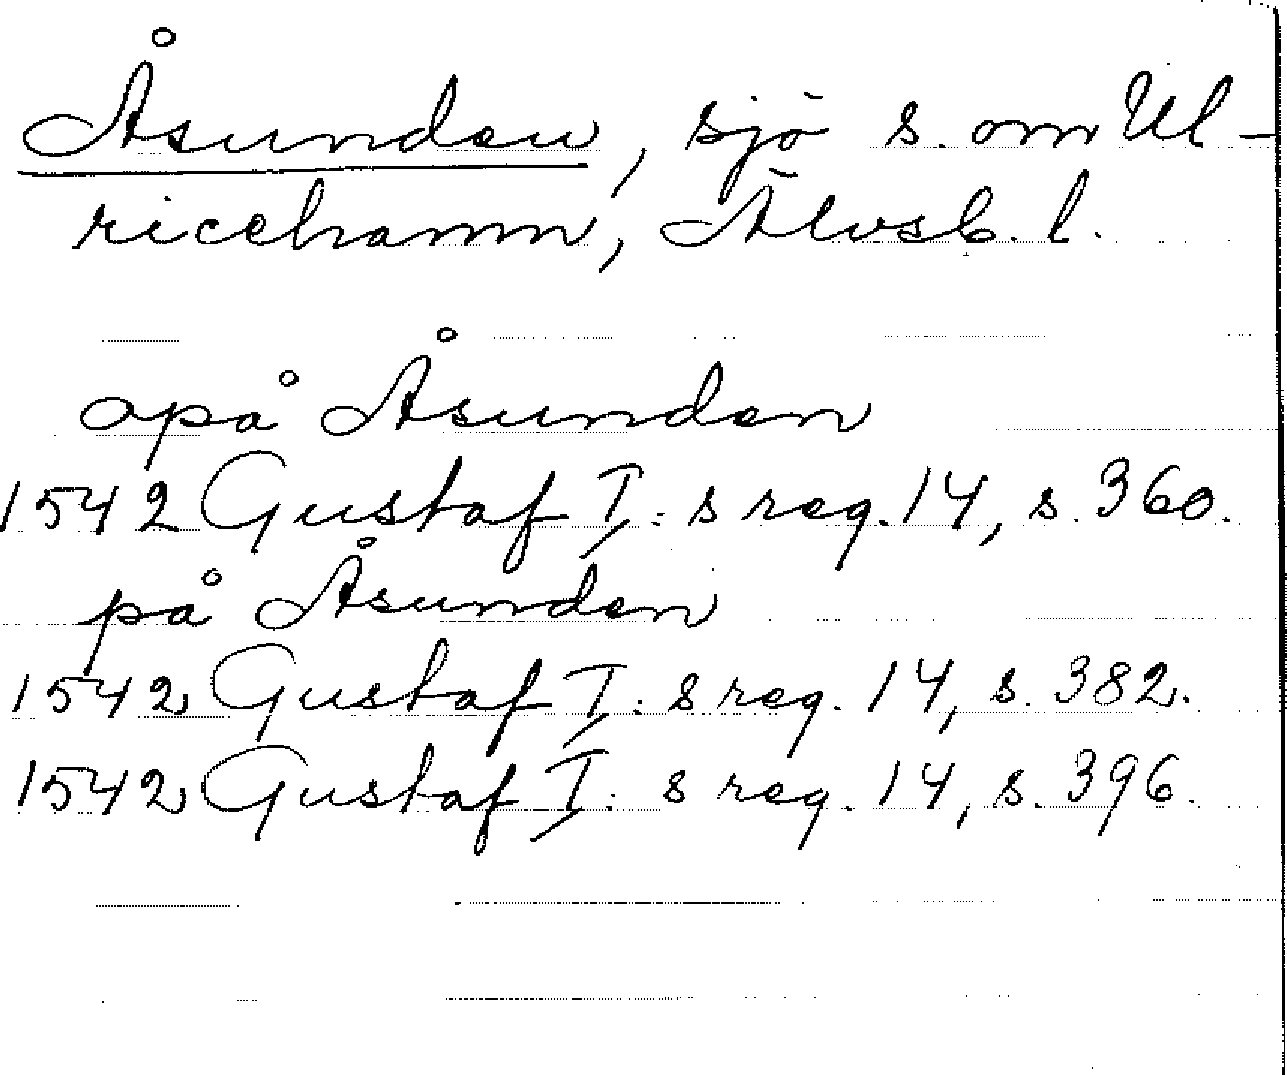 Åsunden, sjö s. om Ul-
ricehamn, Älvsb. l.
apå Åsunden
1542 Gustaf I:s reg. 14, s. 360.
på Åsunden
1542 Gustaf I:s reg. 14, s. 382.
1542 Gustaf I:s reg. 14, s. 396.